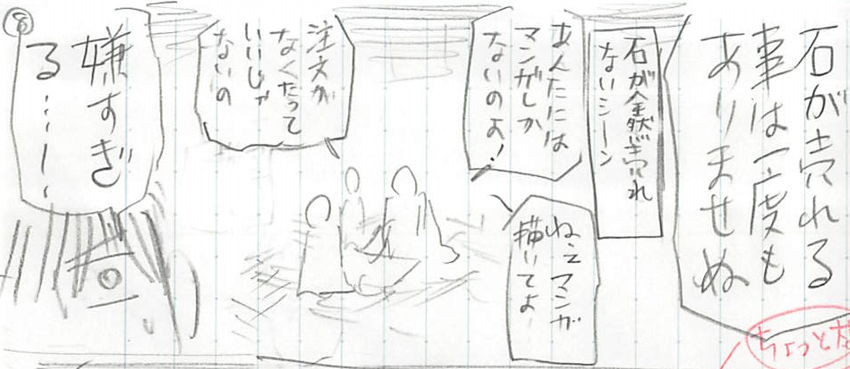 石が売れる
事は一度も
ありませぬ
石が全然売れ
ないシーン
あんたには
マンガしか
ないのよ!
ねえマンガ
描いてよ
注文が
なくたって
いいじゃ
ないの
嫌すぎ
る……
⑧
ちょっと